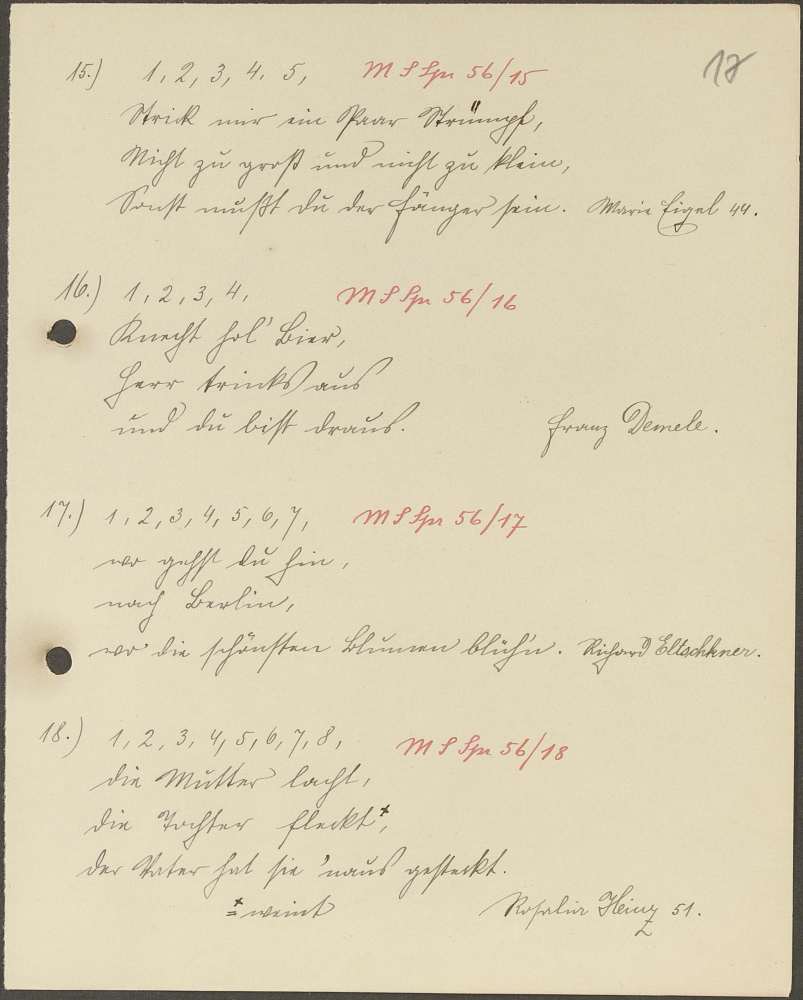 17
15.) 1, 2, 3, 4, 5, M S Spr 56/15
Strick mir ein Paar Strümpf,
Nicht zu groß und nicht zu klein,
Sonst mußt du der Fänger sein. Marie Eigel 44.
16.) 1, 2, 3, 4, M S Spr 56/16
Knecht hol' Bier,
Herr trinks aus
und du bist draus. Franz Demele.
17.) 1, 2, 3, 4, 5, 6, 7, M S Spr 56/17
wo gehst du hin,
nach Berlin,
wo die schönsten Blumen blüh'n. Richard Eltschkner.
18.) 1, 2, 3, 4, 5, 6, 7, 8, M S Spr 56/18
die Mutter lacht,
die Tochter fleckt x,
der Vater hat sie 'naus gesteckt.
x = weint Rosalia Heinz 51.